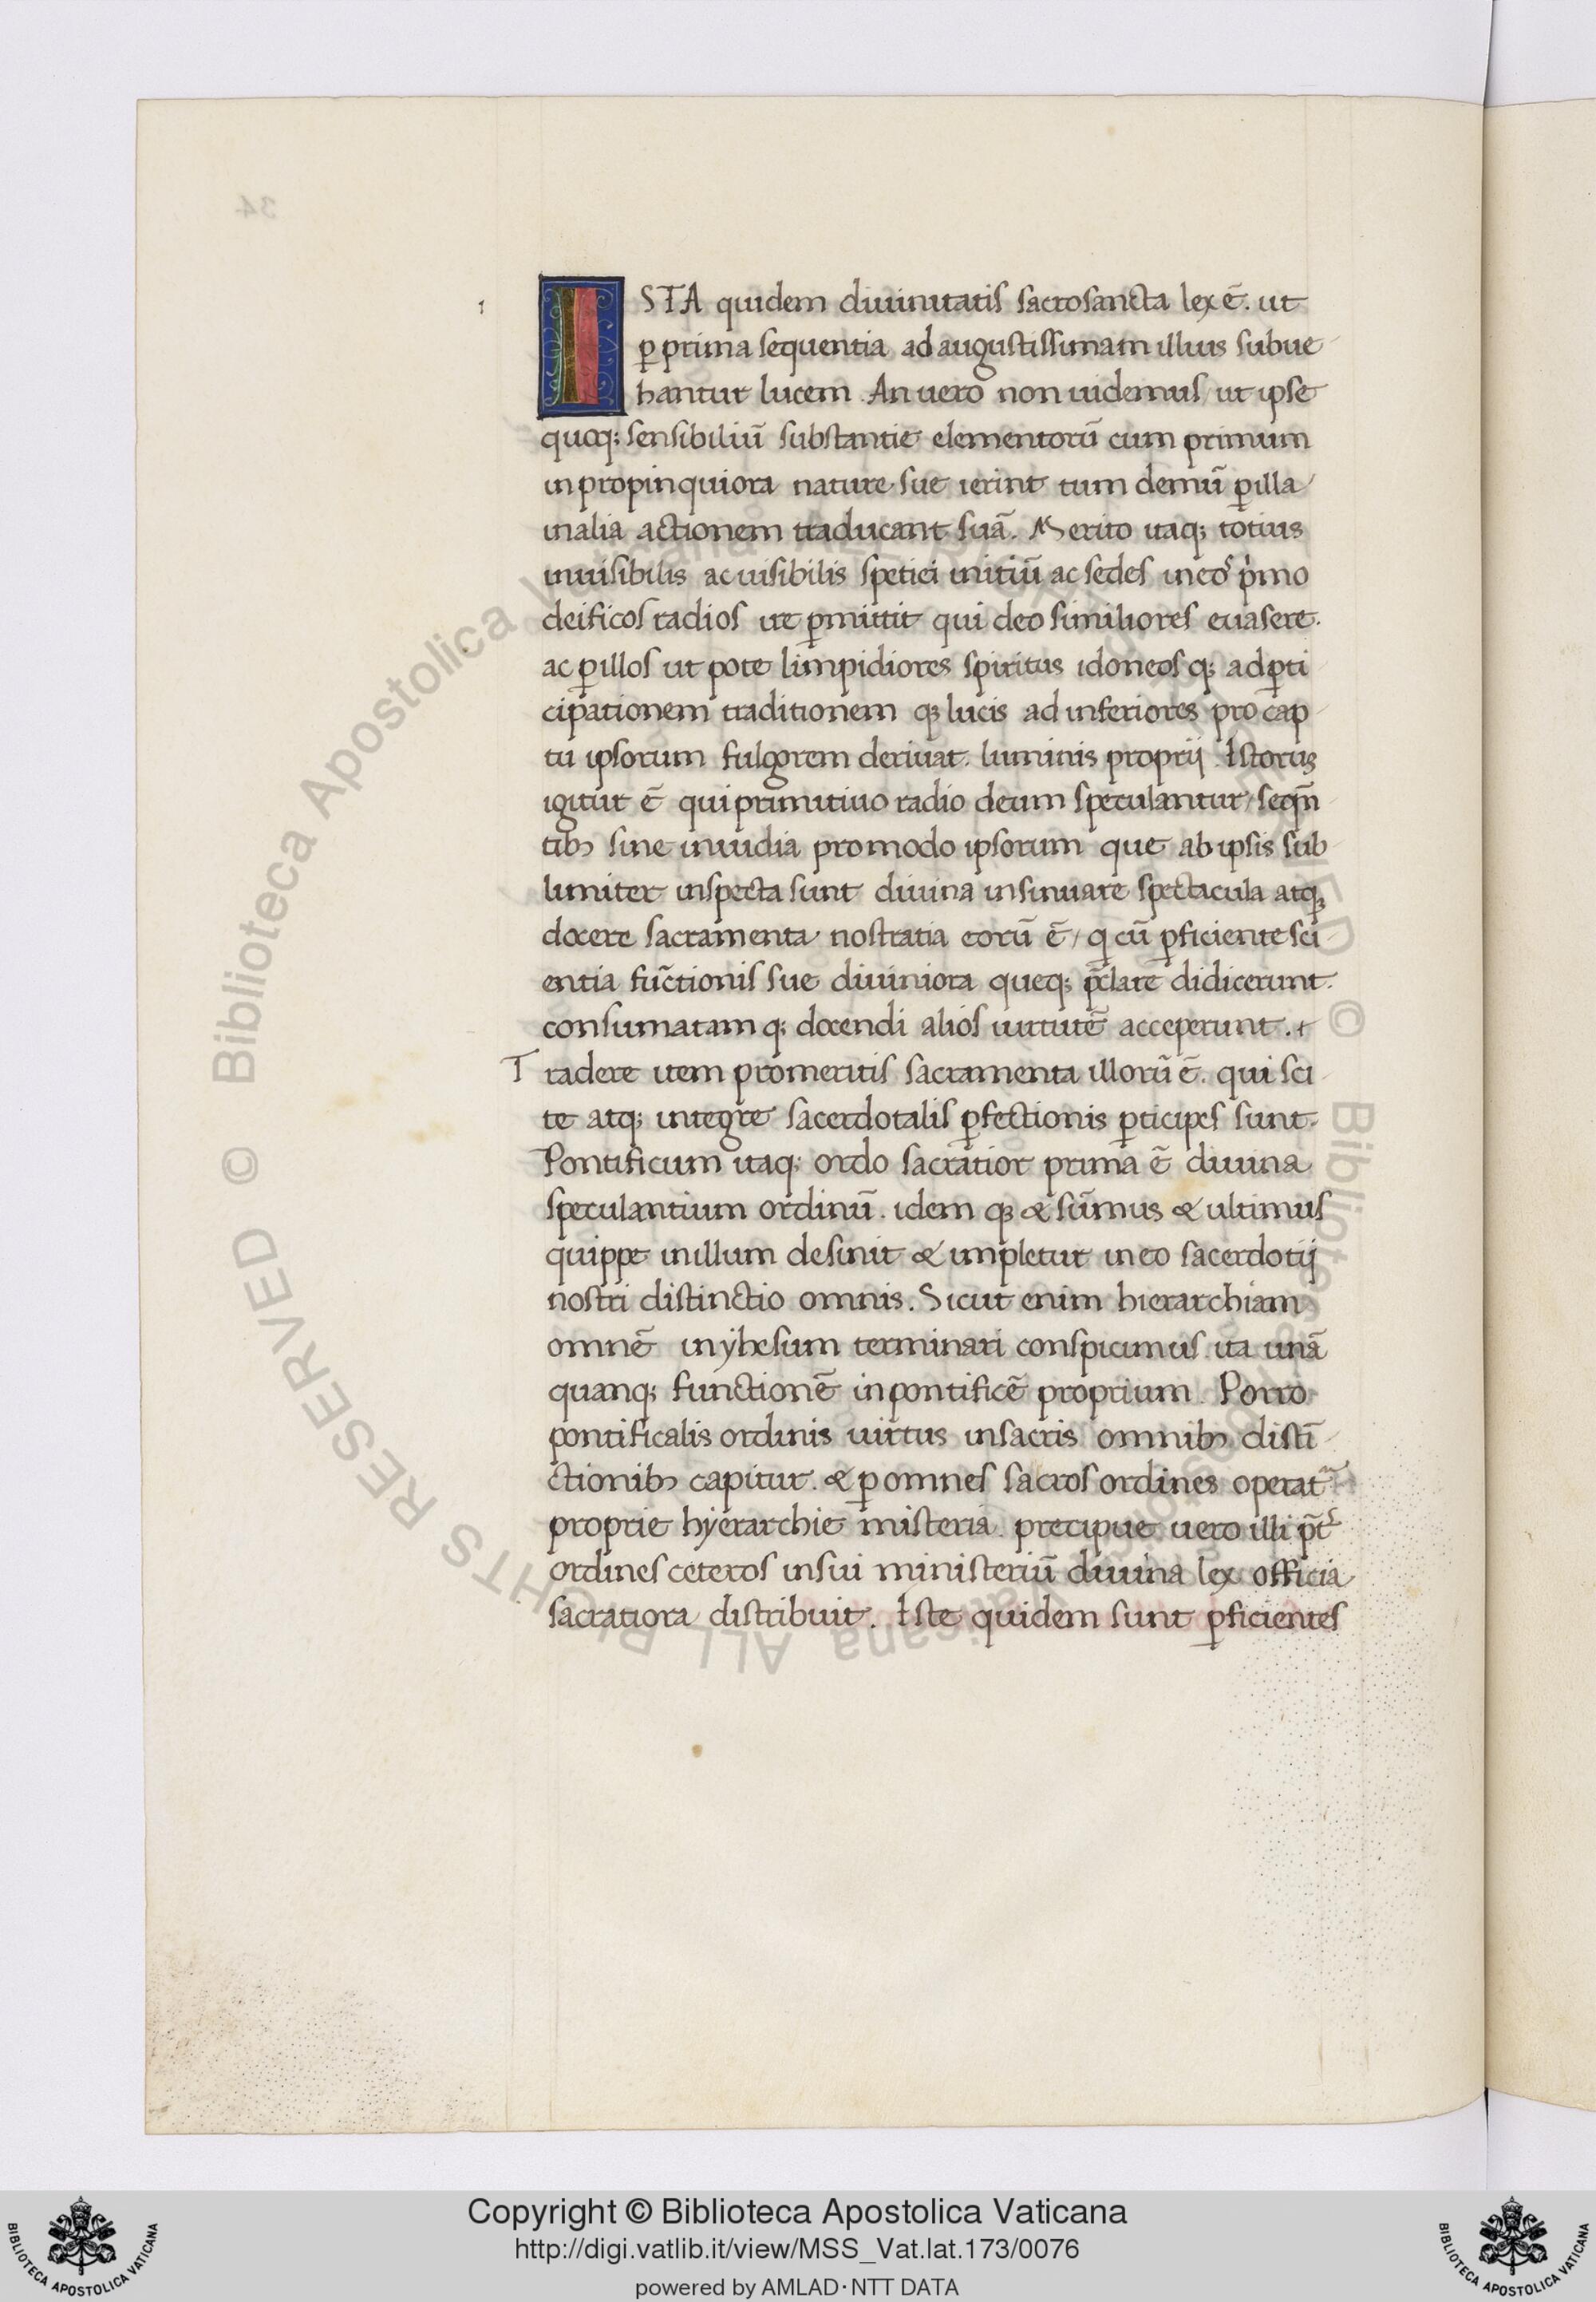 ISTA quidem diuinitatis sacrosancta lex ē. ut
ꝑ prima sequentia ad augustissimam illius subue
hantur lucem. An uero non uidemus / ut ipse
quoqꝫ sensibiliū substantie elementorū cum primum
in propinquiora nature sue ierint tum demū ꝑ illa
in alia actionem traducant suā. Merito itaqꝫ totius
inuisibilis ac uisibilis spetiei initiū ac sedes in eos primo
deificos radios ire ꝑmittit qui deo similiores euasere.
ac ꝑ illos ut pote limpidiores spiritus idoneos qꝫ ad ꝑti
cipationem traditionem qꝫ lucis ad inferiores pro cap
tu ipsorum fulgorem deriuat. luminis proprij. Istorum
igitur ē qui primitiuo radio deum speculantur / seqn̄
tibꝫ sine inuidia pro modo ipsorum que ab ipsis sub
limiter inspecta sunt diuina insinuare spectacula atqꝫ
docere sacramenta nostratia eorū ē / qi cū ꝑficiente sci
entia fūctionis sue diuiniora queqꝫ p̄clare didicerunt.
consumatam qꝫ docendi alios uirtutē acceperunt.
Tradere item pro meritis sacramenta illorū ē. qui sci
te atqꝫ integre sacerdotalis ꝑfectionis ꝑticipes sunt.
Pontificum itaqꝫ ordo sacratior prima ē diuina
speculantium ordinū. idem qꝫ & sūmus & ultimus
quippe in illum desinit & impletur in eo sacerdotij
nostri distinctio omnis. Sicut enim hierarchiam
omnē in yhesum terminari conspicimus. ita unā
quanqꝫ functionē in pontificē proprium. Porro
pontificalis ordinis uirtus in sacris omnibꝫ distī
ctionibꝫ capitur. & ꝑ omnes sacros ordines operat᷑
proprie hyerarchie misteria. precipue uero illi p̄t
ordines ceteros in sui ministeriū diuina lex officia
sacratiora distribuit. Iste quidem sunt ꝑficientes
Copyright © Biblioteca Apostolica Vaticana
http://digi.vatlib.it/view/MSS_Vat.lat.173/0076
powered by AMLAD·NTT DATA